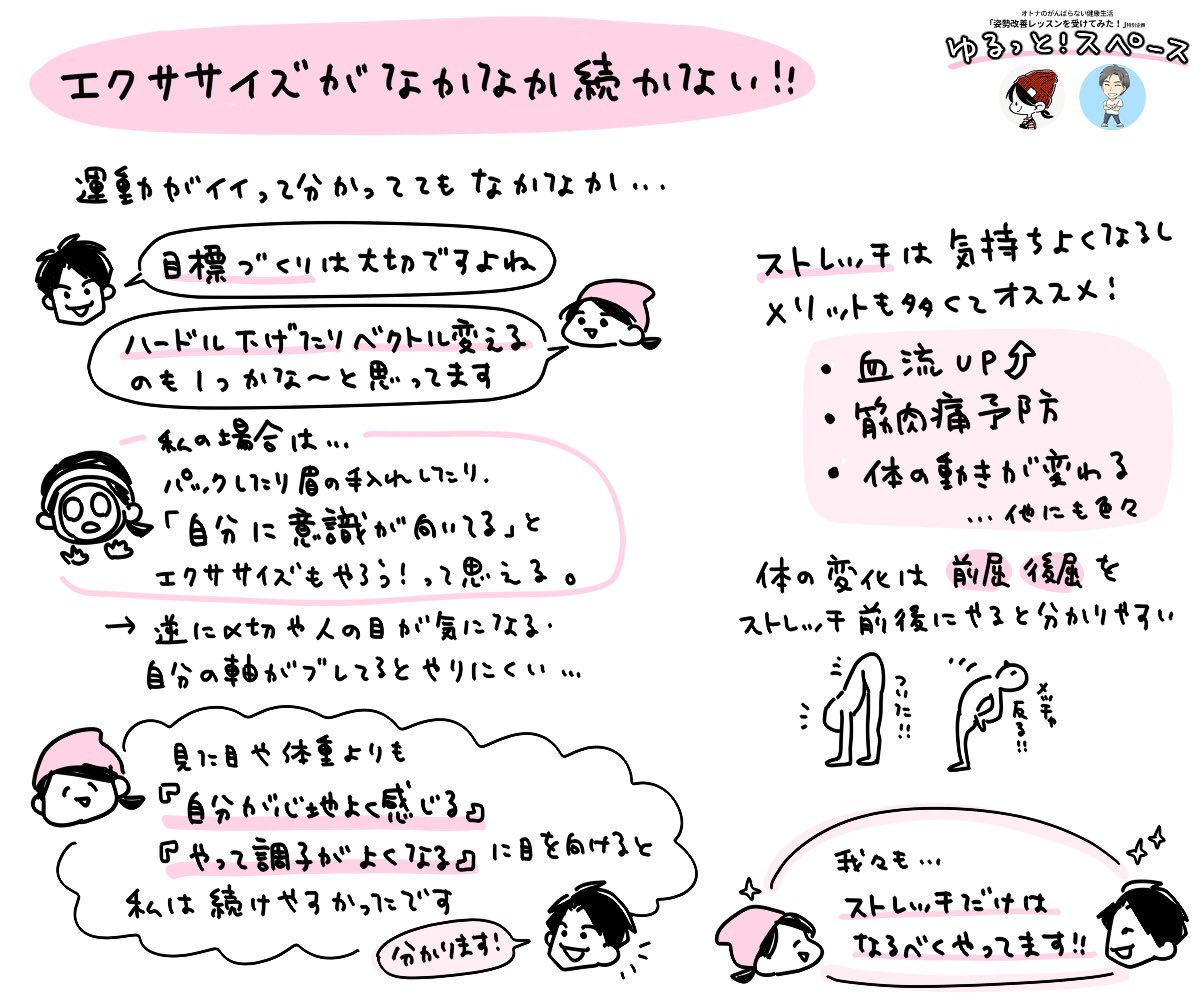 エクササイズがなかなか続かない!!
オトナのがんばらない健康生活
「姿勢改善レッスンを受けてみた！」特別企画
ゆるっと!スペース
運動がイイって分かっててもなかなか...
目標づくりは大切ですよね
ハードル下げたりベクトル変える
のもしっかな〜と思ってます
私の場合は...
パックしたり眉の手入れしたり、
「自分に意識が向いてる」と
エクササイズもやろう!って思える。
→ 逆に〆切や人の目が気になる・
自分の軸がブレてるとやりにくい...
見た目や体重よりも
『自分が心地よく感じる』
『やって調子がよくなる』に目を向けると
私は続けやすかったです
分かります!
ストレッチは気持ちよくなるし
メリットも多くてオススメ!
・血流UP⇧
・筋肉痛予防
・体の動きが変わる
...他にも色々
体の変化は前屈 後屈を
ストレッチ前後にやると分かりやすい
ついた!!
メッチャ
反る!!
我々も...
ストレッチだけは
なるべくやってます!!